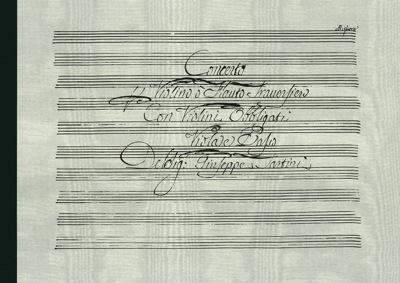 Concerto
Violino ò Flauto Traversiero
Con Violini Obbligati
Viola e Basso
Del Sig: Giuseppe Tartini